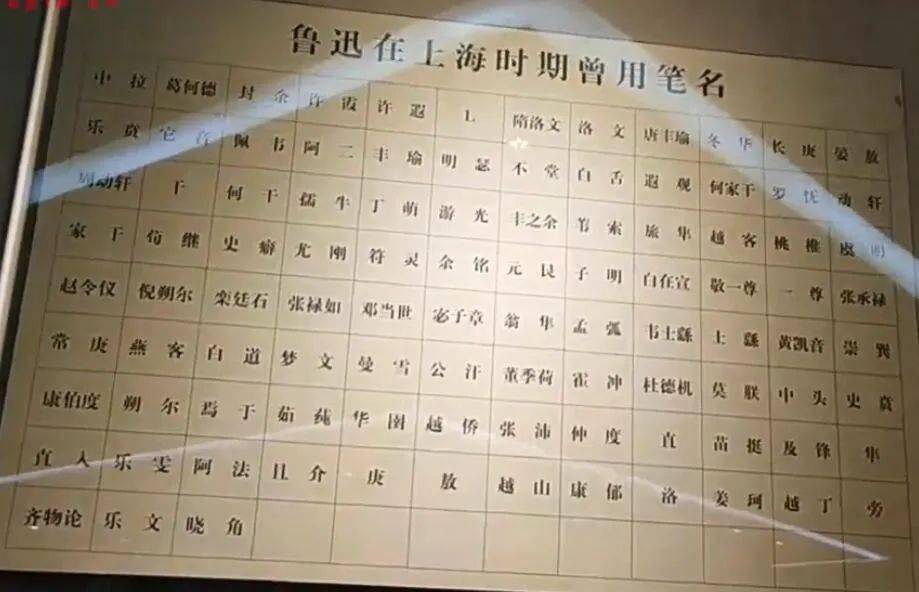 鲁迅在上海时期曾用笔名
中拉 葛何德 封余 许霞 许遐 L 隋洛文 洛文 唐丰瑜 冬华 长庚 晏敖
乐贲 它音 佩韦 阿二 丰瑜 明瑟 不堂 白舌 遐观 何家干 罗怃 动轩
周动轩 干 何干 孺牛 丁萌 游光 丰之余 苇索 旅隼 越客 桃椎 虞明
家干 荀继 史癖 尤刚 符灵 余铭 元艮 子明 白在宣 敬一尊 一尊 张承禄
赵令仪 倪朔尔 栾廷石 张禄如 邓当世 宓子章 翁隼 孟弧 韦士繇 士繇 黄凯音 崇巽
常庚 燕客 白道 梦文 曼雪 公汗 董季荷 霍冲 杜德机 莫朕 中头 史贲
康伯度 朔尔 焉于 茹莼 华圉 越侨 张沛 仲度 直 苗挺 及锋 隼
直入 乐雯 阿法 且介 庚 敖 越山 康郁 洛 姜珂 越丁 旁
齐物论 乐文 晓角